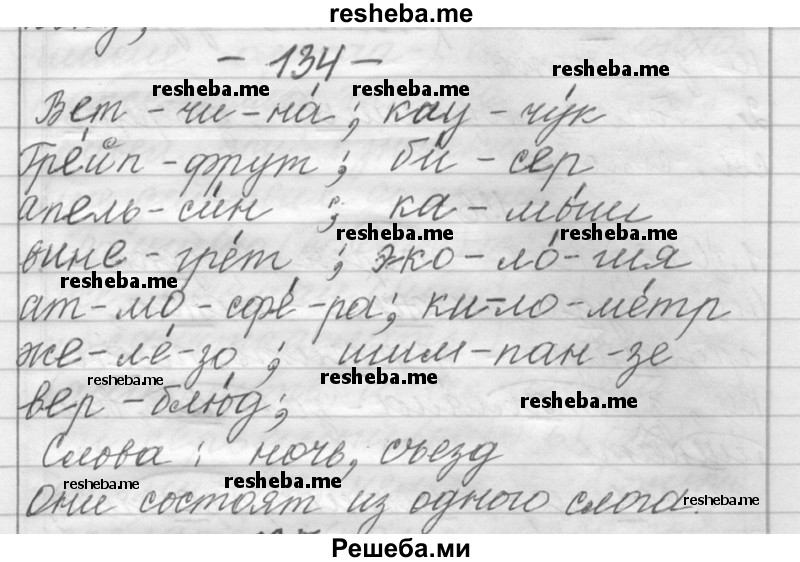 resheba.me
- 134 -
resheba.me resheba.me
Вет - чи - на́ ; кау - чу́к
Гре́йп - фрут ; би́ - сер
апель - си́н ; ка - мы́ш
resheba.me resheba.me
вине - гре́т ; эко - ло́ - гия
resheba.me
ат - мо - сфе́ - ра; ки - ло - ме́тр
же - ле́ - зо ; шим - пан - зе
resheba.me resheba.me
вер - блю́д ;
resheba.me
Слова : ночь, съезд
resheba.me resheba.me
Они состоят из одного слога.
resheba.me
Решеба.ми